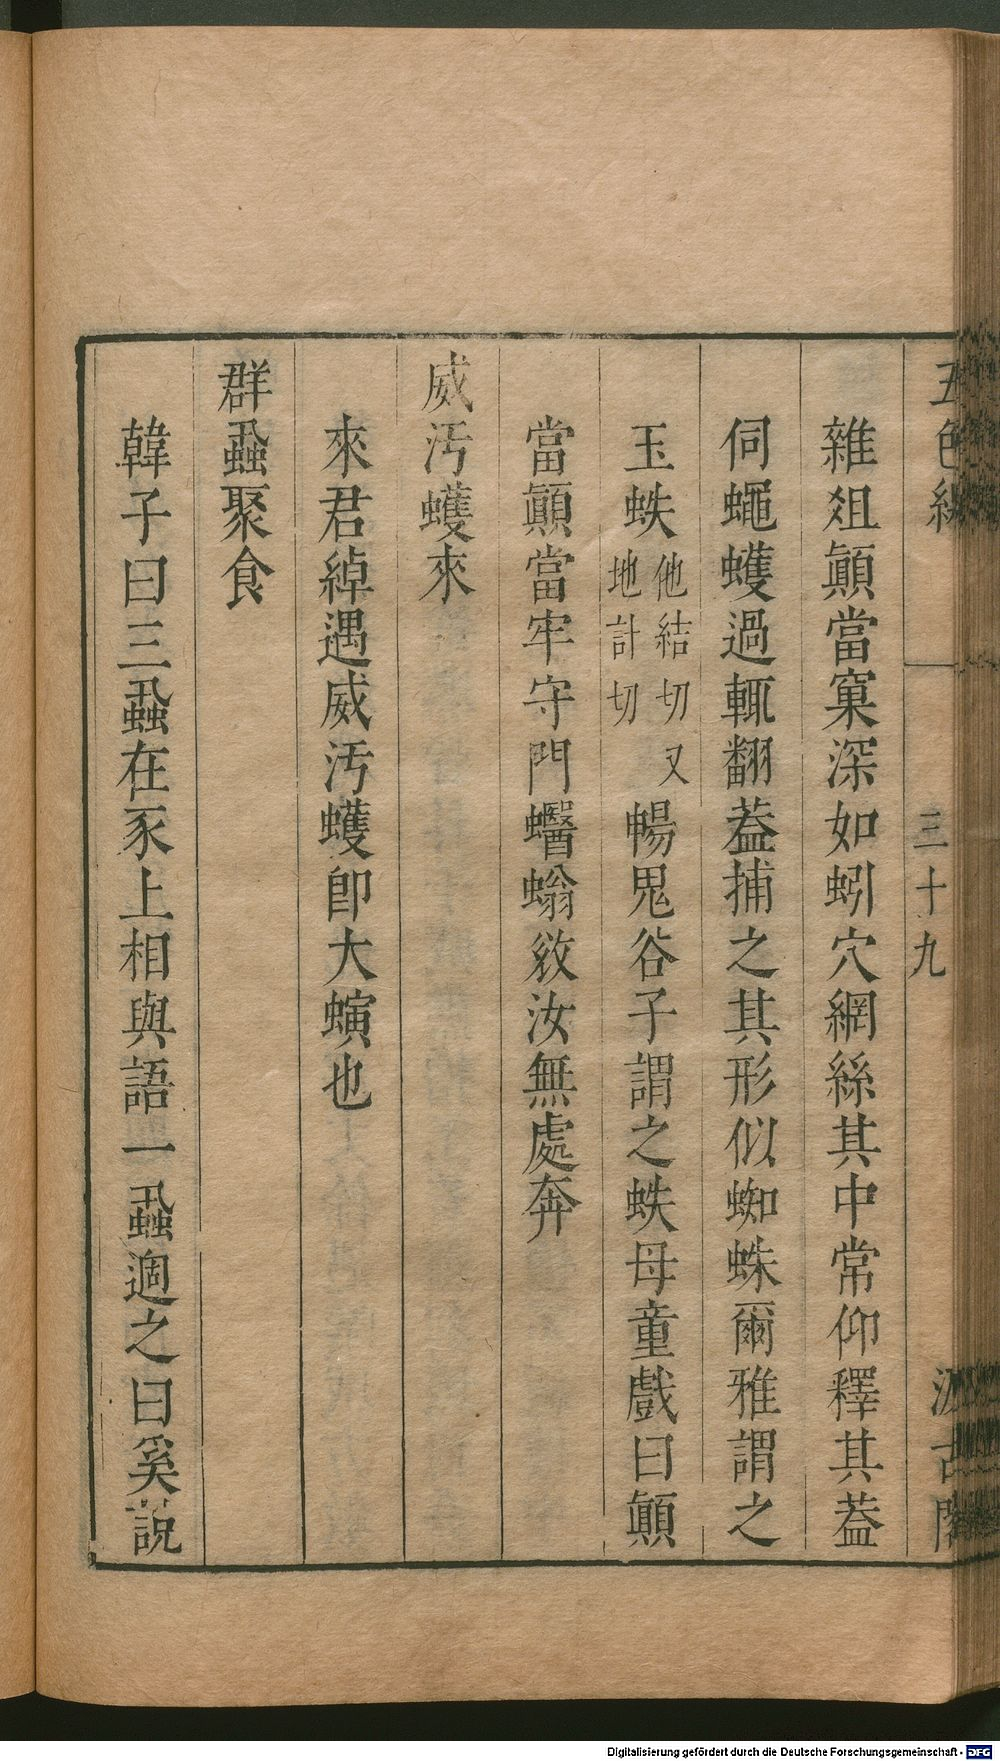 五色線
三十九
汲古閣
雜爼顚當窠深如蚓穴網絲其中常仰釋其葢
伺蠅蠖過輒翻葢捕之其形似蜘蛛爾雅謂之
玉蛈他結切又地計切蝪鬼谷子謂之蛈母童戲曰顚
當顚當牢守門蠮螉敓汝無處奔
威汚蠖來
來君綽遇威汚蠖卽大螾也
群蝨聚食
韓子曰三蝨在豕上相與語一蝨過之曰奚說
Digitalisierung gefördert durch die Deutsche Forschungsgemeinschaft - DFG